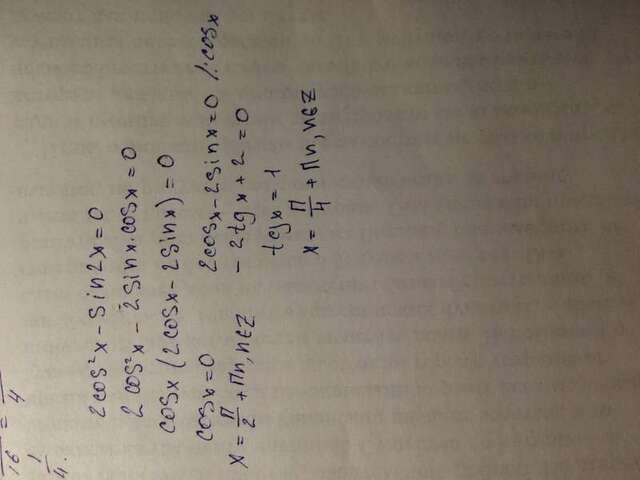 16 = 4
1
4.
2cos²x - sin2x = 0
2cos²x - 2sinx·cosx = 0
cosx (2cosx - 2sinx) = 0
cosx = 0
x = П/2 + Пn, n∈Z
2cosx - 2sinx = 0 /:cosx
- 2tgx + 2 = 0
tgx = 1
x = П/4 + Пn, n∈Z